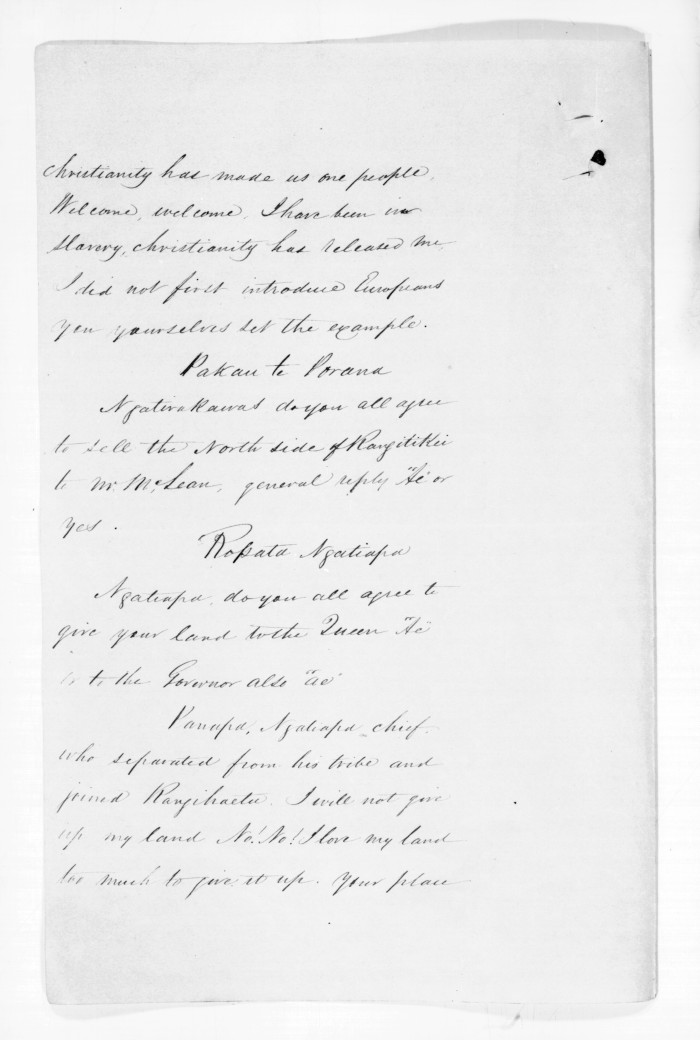 Christianity has made us one people.
Welcome, welcome, I have been in
slavery, Christianity has released me,
I did not first introduce Europeans
you yourselves set the example.
Pakau te Porana
Ngatirakawas do you all agree
to sell the North side of Rangitikei
to Mr. McLean, general reply "Ae" or
yes.
Ropata Ngatiapa
Ngatiapa, do you all agree to
give your land to the Queen "Ae"
to the Governor also "ae"
Panapa, Ngatiapa chief
who separated from his tribe and
joined Rangihaeta. I will not give
up my land No! No! I love my land
too much to give it up. Your place